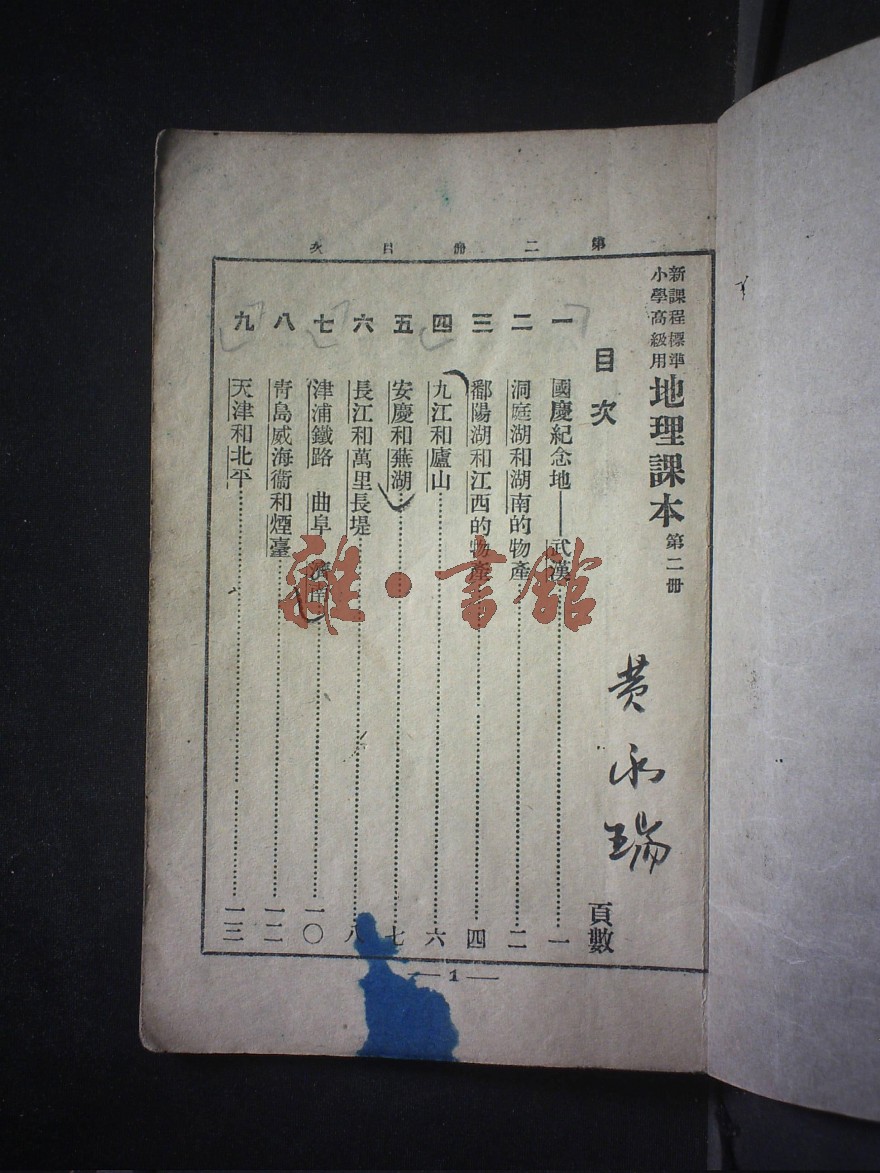 第二冊目次
新課程標準
小學高級用
地理課本 第二冊
目次
頁數
黄永瑞
一 國慶紀念地——武漢 一
二 洞庭湖和湖南的物產 二
三 鄱陽湖和江西的物產 四
四 九江和廬山 六
五 安慶和蕪湖 七
六 長江和萬里長堤 八
七 津浦鐵路 曲阜 濟南 一〇
八 青島威海衞和煙臺 一二
九 天津和北平 一三
— 1 —
雜·書館